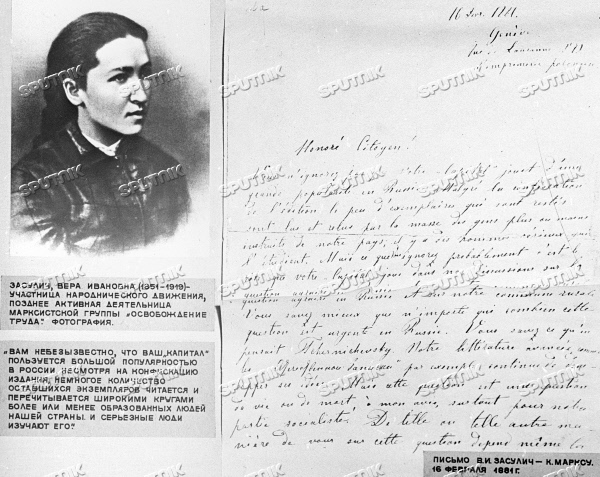 16 Fev. 1881.
Genève
Rue de Lausanne № 49
L'imprimerie polonaise
Honoré Citoyen!
n'ignorez pas que votre "Capital" jouit d'une
grande popularité en Russie. Malgré la confiscation
de l'édition le peu d'exemplaires qui sont restés
sont lus et relus par la masse des gens plus ou moins
instruits de notre pays, il y a des hommes sérieux qui
l'étudient. Mais ce que ignorez probablement c'est le
que votre Capital joue dans nos discussions sur la
question agraire en Russie et sur notre commune rurale.
Vous savez mieux que n'importe qui combien cette
question est urgent en Russie. Vous savez ce qu'en
pensait Tchernichevsky. Notre littérature avancée, comme
par exemple continue à
ses idées. Mais cette question est une question
de vie ou de mort, à mon avis, surtout pour notre
parti socialiste. De telle ou telle autre ma-
nière de vous sur cette question dépend même la
ЗАСУЛИЧ, ВЕРА ИВАНОВНА (1851-1919)-
УЧАСТНИЦА НАРОДНИЧЕСКОГО ДВИЖЕНИЯ,
ПОЗДНЕЕ АКТИВНАЯ ДЕЯТЕЛЬНИЦА
МАРКСИСТСКОЙ ГРУППЫ «ОСВОБОЖДЕНИЕ
ТРУДА». ФОТОГРАФИЯ.
«ВАМ НЕБЕЗЫЗВЕСТНО, ЧТО ВАШ „КАПИТАЛ"
ПОЛЬЗУЕТСЯ БОЛЬШОЙ ПОПУЛЯРНОСТЬЮ
В РОССИИ. НЕСМОТРЯ НА КОНФИСКАЦИЮ
ИЗДАНИЯ, НЕМНОГОЕ КОЛИЧЕСТВО
ОСТАВШИХСЯ ЭКЗЕМПЛЯРОВ ЧИТАЕТСЯ И
ПЕРЕЧИТЫВАЕТСЯ ШИРОКИМИ КРУГАМИ
БОЛЕЕ ИЛИ МЕНЕЕ ОБРАЗОВАННЫХ ЛЮДЕЙ
НАШЕЙ СТРАНЫ. И СЕРЬЕЗНЫЕ ЛЮДИ
ИЗУЧАЮТ ЕГО».
ПИСЬМО В.И. ЗАСУЛИЧ — К. МАРКСУ.
16 ФЕВРАЛЯ 1881 Г.
SPUTNIK